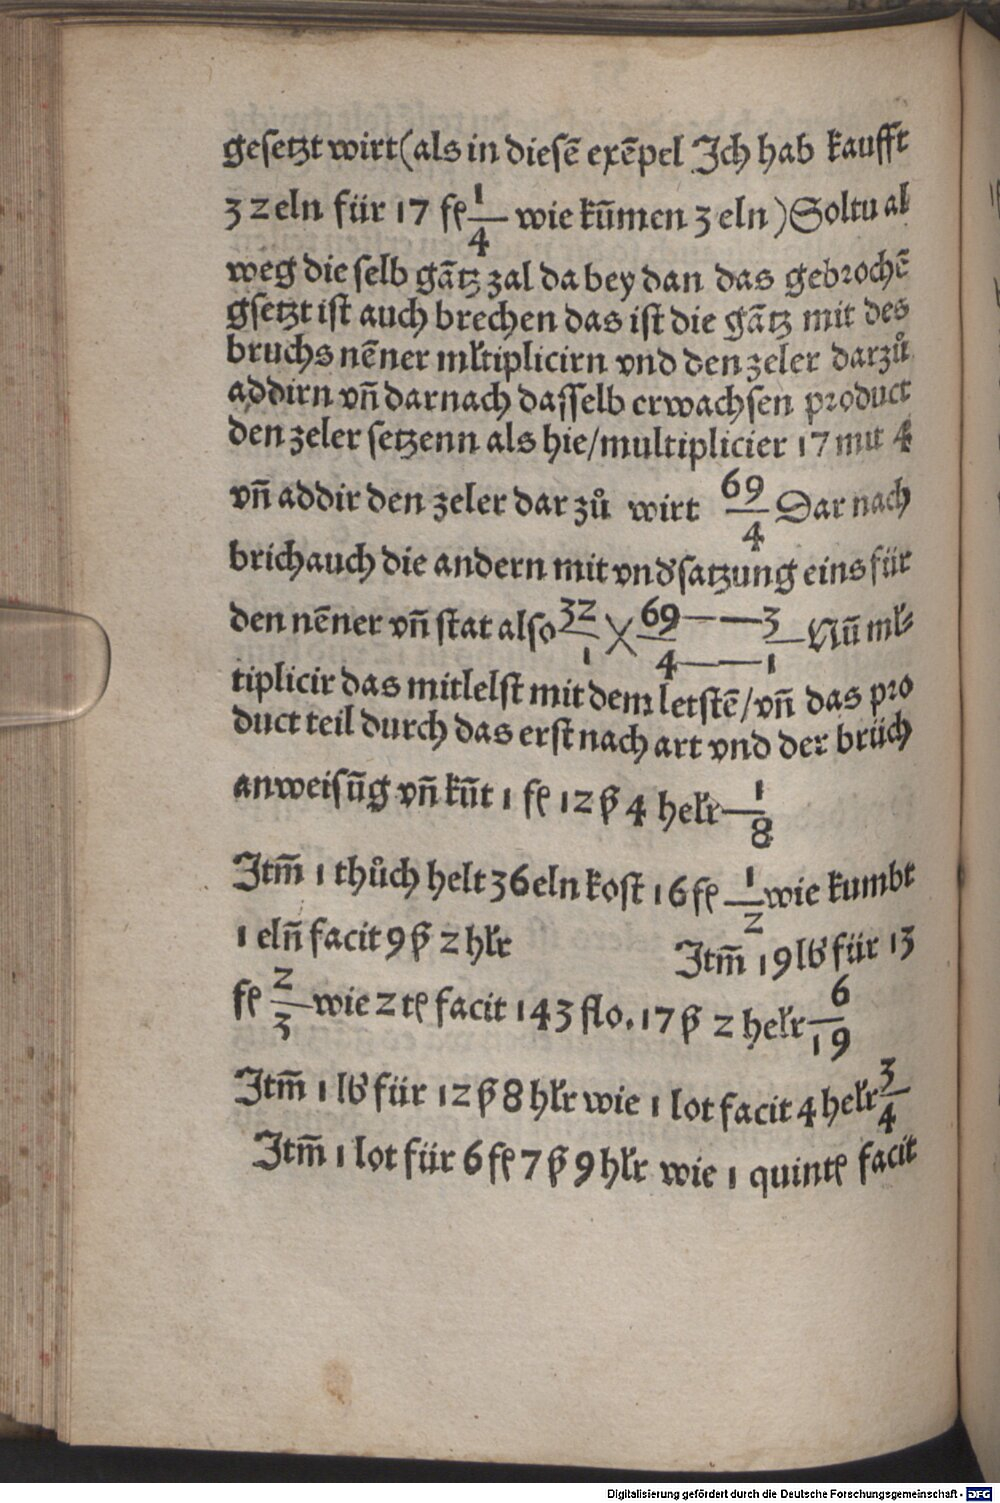 gesetzt wirt(als in diesē exēpel Jch hab kaufft
32 eln für 17 fƪ 1/4 wie kūmen 3 eln) Soltu al
weg die selb gātz zal da bey dan das gebrochē
gsetzt ist auch brechen das ist die gātz mit des
bruchs nēner mƚtiplicirn vnd den zeler darzů
addirn vn̄ darnach dasselb erwachsen product
den zeler setzenn als hie/multiplicier 17 mit 4
vn̄ addir den zeler dar zů wirt 69/4 Dar nach
brich auch die andern mit vndsatzung eins für
den nēner vn̄ stat also 32/1 X 69/4 —— 3/1 Nū mƚ⸗
tiplicir das mitlelst mit dem letstē/vn̄ das pro
duct teil durch das erst nach art vnd der brüch
anweisūg vn̄ kūt 1 fƪ 12 ß 4 helr 1/8
Jtm̄ 1 thůch helt 36 eln kost 16 fƪ 1/2 wie kumbt
1 eln̄ facit 9 ß 2 hƚr Jtm̄ 19 lb für 13
fƪ 2/3 wie 2 tƪ facit 143 flo. 17 ß 2 helr 6/19
Jtm̄ 1 lb für 12 ß 8 hƚr wie 1 lot facit 4 helr 3/4
Jtm̄ 1 lot für 6 fƪ 7 ß 9 hƚr wie 1 quintƪ facit
Digitalisierung gefördert durch die Deutsche Forschungsgemeinschaft - DFG